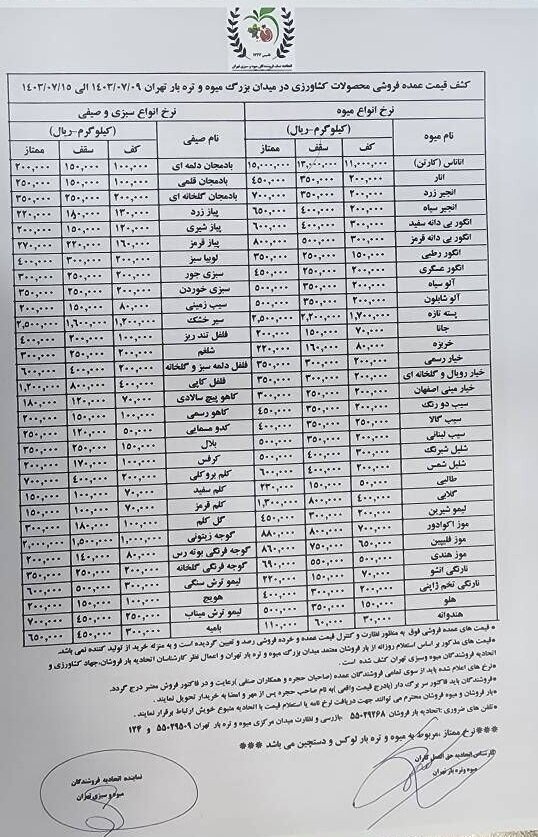 کشف قیمت عمده فروشی محصولات کشاورزی در میدان بزرگ میوه و تره بار تهران ۱۴۰۳/۰۷/۰۹ الی ۱۴۰۳/۰۷/۱۵
نرخ انواع میوه
نرخ انواع سبزی و صیفی
نام میوه (کیلوگرم-ریال) نام صیفی (کیلوگرم-ریال)
کف سقف ممتاز کف سقف ممتاز
آناناس (کارتن) ۱۱,۰۰۰,۰۰۰ ۱۳,۰۰۰,۰۰۰ ۱۵,۰۰۰,۰۰۰ بادمجان دلمه ای ۱۰۰,۰۰۰ ۱۵۰,۰۰۰ ۲۰۰,۰۰۰
انار ۲۰۰,۰۰۰ ۳۵۰,۰۰۰ ۴۵۰,۰۰۰ بادمجان قلمی ۱۰۰,۰۰۰ ۱۵۰,۰۰۰ ۲۵۰,۰۰۰
انجیر زرد ۲۰۰,۰۰۰ ۳۵۰,۰۰۰ ۷۰۰,۰۰۰ بادمجان گلخانه ای ۲۰۰,۰۰۰ ۲۵۰,۰۰۰ ۳۵۰,۰۰۰
انجیر سیاه ۲۰۰,۰۰۰ ۴۰۰,۰۰۰ ۶۵۰,۰۰۰ پیاز زرد ۱۳۰,۰۰۰ ۱۸۰,۰۰۰ ۲۲۰,۰۰۰
انگور بی دانه سفید ۳۰۰,۰۰۰ ۴۰۰,۰۰۰ ۶۰۰,۰۰۰ پیاز شیری ۱۲۰,۰۰۰ ۱۵۰,۰۰۰ ۲۰۰,۰۰۰
انگور بی دانه قرمز ۳۰۰,۰۰۰ ۵۰۰,۰۰۰ ۸۰۰,۰۰۰ پیاز قرمز ۱۶۰,۰۰۰ ۲۲۰,۰۰۰ ۲۷۰,۰۰۰
انگور رطبی ۱۵۰,۰۰۰ ۲۵۰,۰۰۰ ۳۵۰,۰۰۰ لوبیا سبز ۲۰۰,۰۰۰ ۳۰۰,۰۰۰ ۴۰۰,۰۰۰
انگور عسگری ۲۰۰,۰۰۰ ۲۵۰,۰۰۰ ۴۵۰,۰۰۰ سبزی جور ۲۰۰,۰۰۰ ۲۵۰,۰۰۰ ۳۰۰,۰۰۰
آلو سیاه ۲۰۰,۰۰۰ ۳۵۰,۰۰۰ ۵۰۰,۰۰۰ سبزی خوردن ۲۰۰,۰۰۰ ۳۵۰,۰۰۰ ۳۵۰,۰۰۰
آلو شابلون ۲۰۰,۰۰۰ ۳۵۰,۰۰۰ ۵۰۰,۰۰۰ سیب زمینی ۸۰,۰۰۰ ۱۵۰,۰۰۰ ۲۰۰,۰۰۰
پسته تازه ۱,۷۰۰,۰۰۰ ۲,۲۰۰,۰۰۰ ۲,۵۰۰,۰۰۰ سیر خشک ۱,۲۰۰,۰۰۰ ۱,۶۰۰,۰۰۰ ۲,۵۰۰,۰۰۰
جانا ۷۰,۰۰۰ ۱۵۰,۰۰۰ ۲۰۰,۰۰۰ فلفل تند ریز ۱۰۰,۰۰۰ ۲۰۰,۰۰۰ ۴۰۰,۰۰۰
خربزه ۸۰,۰۰۰ ۱۶۰,۰۰۰ ۲۲۰,۰۰۰ شلغم ۲۰۰,۰۰۰ ۲۵۰,۰۰۰ ۳۰۰,۰۰۰
خیار رسمی ۲۰۰,۰۰۰ ۳۰۰,۰۰۰ ۳۵۰,۰۰۰ فلفل دلمه سبز و گلخانه ۲۰۰,۰۰۰ ۴۰۰,۰۰۰ ۶۰۰,۰۰۰
خیار رویال و گلخانه ای ۲۰۰,۰۰۰ ۳۰۰,۰۰۰ ۳۵۰,۰۰۰ فلفل کاپی ۴۰۰,۰۰۰ ۸۰۰,۰۰۰ ۱,۲۰۰,۰۰۰
خیار مینی اصفهان ۲۰۰,۰۰۰ ۲۵۰,۰۰۰ ۳۰۰,۰۰۰ کاهو پیچ سالادی ۷۰,۰۰۰ ۱۲۰,۰۰۰ ۱۸۰,۰۰۰
سیب دو رنگ ۲۰۰,۰۰۰ ۳۵۰,۰۰۰ ۴۵۰,۰۰۰ کاهو رسمی ۱۰۰,۰۰۰ ۱۵۰,۰۰۰ ۲۰۰,۰۰۰
سیب گالا ۲۰۰,۰۰۰ ۲۵۰,۰۰۰ ۳۵۰,۰۰۰ کدو مسمایی ۵۰,۰۰۰ ۱۲۰,۰۰۰ ۲۵۰,۰۰۰
سیب لبنانی ۲۰۰,۰۰۰ ۳۵۰,۰۰۰ ۵۰۰,۰۰۰ بلال ۱۵۰,۰۰۰ ۲۵۰,۰۰۰ ۳۵۰,۰۰۰
شلیل شبرنگ ۳۰۰,۰۰۰ ۴۰۰,۰۰۰ ۵۰۰,۰۰۰ کرفس ۱۰۰,۰۰۰ ۱۷۰,۰۰۰ ۲۰۰,۰۰۰
شلیل شمس ۲۰۰,۰۰۰ ۴۰۰,۰۰۰ ۶۰۰,۰۰۰ کلم بروکلی ۲۰۰,۰۰۰ ۴۰۰,۰۰۰ ۷۰۰,۰۰۰
طالبی ۵۰,۰۰۰ ۱۵۰,۰۰۰ ۲۳۰,۰۰۰ کلم سفید ۷۰,۰۰۰ ۱۰۰,۰۰۰ ۱۵۰,۰۰۰
گلابی ۴۰۰,۰۰۰ ۸۰۰,۰۰۰ ۱,۳۰۰,۰۰۰ کلم قرمز ۷۰,۰۰۰ ۱۰۰,۰۰۰ ۱۵۰,۰۰۰
لیمو شیرین ۲۰۰,۰۰۰ ۳۰۰,۰۰۰ ۴۵۰,۰۰۰ گل کلم ۱۰۰,۰۰۰ ۱۸۰,۰۰۰ ۳۰۰,۰۰۰
موز اکوادور ۷۰۰,۰۰۰ ۸۰۰,۰۰۰ ۸۸۰,۰۰۰ گوجه زیتونی ۱,۰۰۰,۰۰۰ ۱,۵۰۰,۰۰۰ ۲,۰۰۰,۰۰۰
موز فلیپین ۶۵۰,۰۰۰ ۷۵۰,۰۰۰ ۸۶۰,۰۰۰ گوجه فرنگی بوته رس ۸۰,۰۰۰ ۱۴۰,۰۰۰ ۲۰۰,۰۰۰
موز هندی ۵۰۰,۰۰۰ ۵۵۰,۰۰۰ ۶۹۰,۰۰۰ گوجه فرنگی گلخانه ۲۰۰,۰۰۰ ۲۵۰,۰۰۰ ۳۵۰,۰۰۰
نارنگی انشو ۷۰,۰۰۰ ۱۵۰,۰۰۰ ۲۲۰,۰۰۰ لیمو ترش سنگی ۳۰۰,۰۰۰ ۵۰۰,۰۰۰ ۶۰۰,۰۰۰
نارنگی تخم ژاپنی ۲۰۰,۰۰۰ ۳۰۰,۰۰۰ ۴۰۰,۰۰۰ هویج ۱۰۰,۰۰۰ ۱۵۰,۰۰۰ ۲۰۰,۰۰۰
هلو ۱۵۰,۰۰۰ ۳۵۰,۰۰۰ ۵۰۰,۰۰۰ لیمو ترش میناب ۲۵۰,۰۰۰ ۴۵۰,۰۰۰ ۷۰۰,۰۰۰
هندوانه ۳۰,۰۰۰ ۶۰,۰۰۰ ۱۱۰,۰۰۰ بامیه ۳۰۰,۰۰۰ ۴۵۰,۰۰۰ ۶۵۰,۰۰۰
* قیمت های عمده فروشی فوق به منظور نظارت و کنترل قیمت عمده و خرده فروشی رصد و تعیین گردیده است و به منزله خرید از تولید کننده نمی باشد.
* قیمت های مذکور بر اساس استعلام روزانه از بار فروشان معتمد میدان بزرگ میوه و تره بار تهران و اعمال نظر کارشناسان اتحادیه بار فروشان،جهاد کشاورزی و
اتحادیه فروشندگان میوه وسبزی تهران کشف شده است.
* نرخ های اعلام شده باید از سوی تمامی فروشندگان عمده (صاحبان حجره و همکاران صنفی )رعایت و در فاکتور فروش معتبر درج گردد.
* فروشندگان باید فاکتور سر برگ دار (بادرج قیمت واقعی )به نام صاحب حجره پس از مهر و امضا به خریدار تحویل نمایند.
* بار فروشان و میوه فروشان محترم می توانند جهت دریافت نرخ نامه یا استعلام قیمت با اتحادیه متبوع خویش ارتباط برقرار نمایند.
* تلفن های ضروری :اتحادیه بار فروشان ۵۵۰۲۹۲۶۸ بازرسی و نظارت میدان مرکزی میوه و تره بار تهران ۵۵۰۲۹۵۰۹ و ۱۲۴
***نرخ ممتاز ،مربوط به میوه و تره بار لوکس و دستچین می باشد ***
کارشناس اتحادیه حق العمل کاران
میوه و تره بار تهران
نماینده اتحادیه فروشندگان
میوه و سبزی تهران